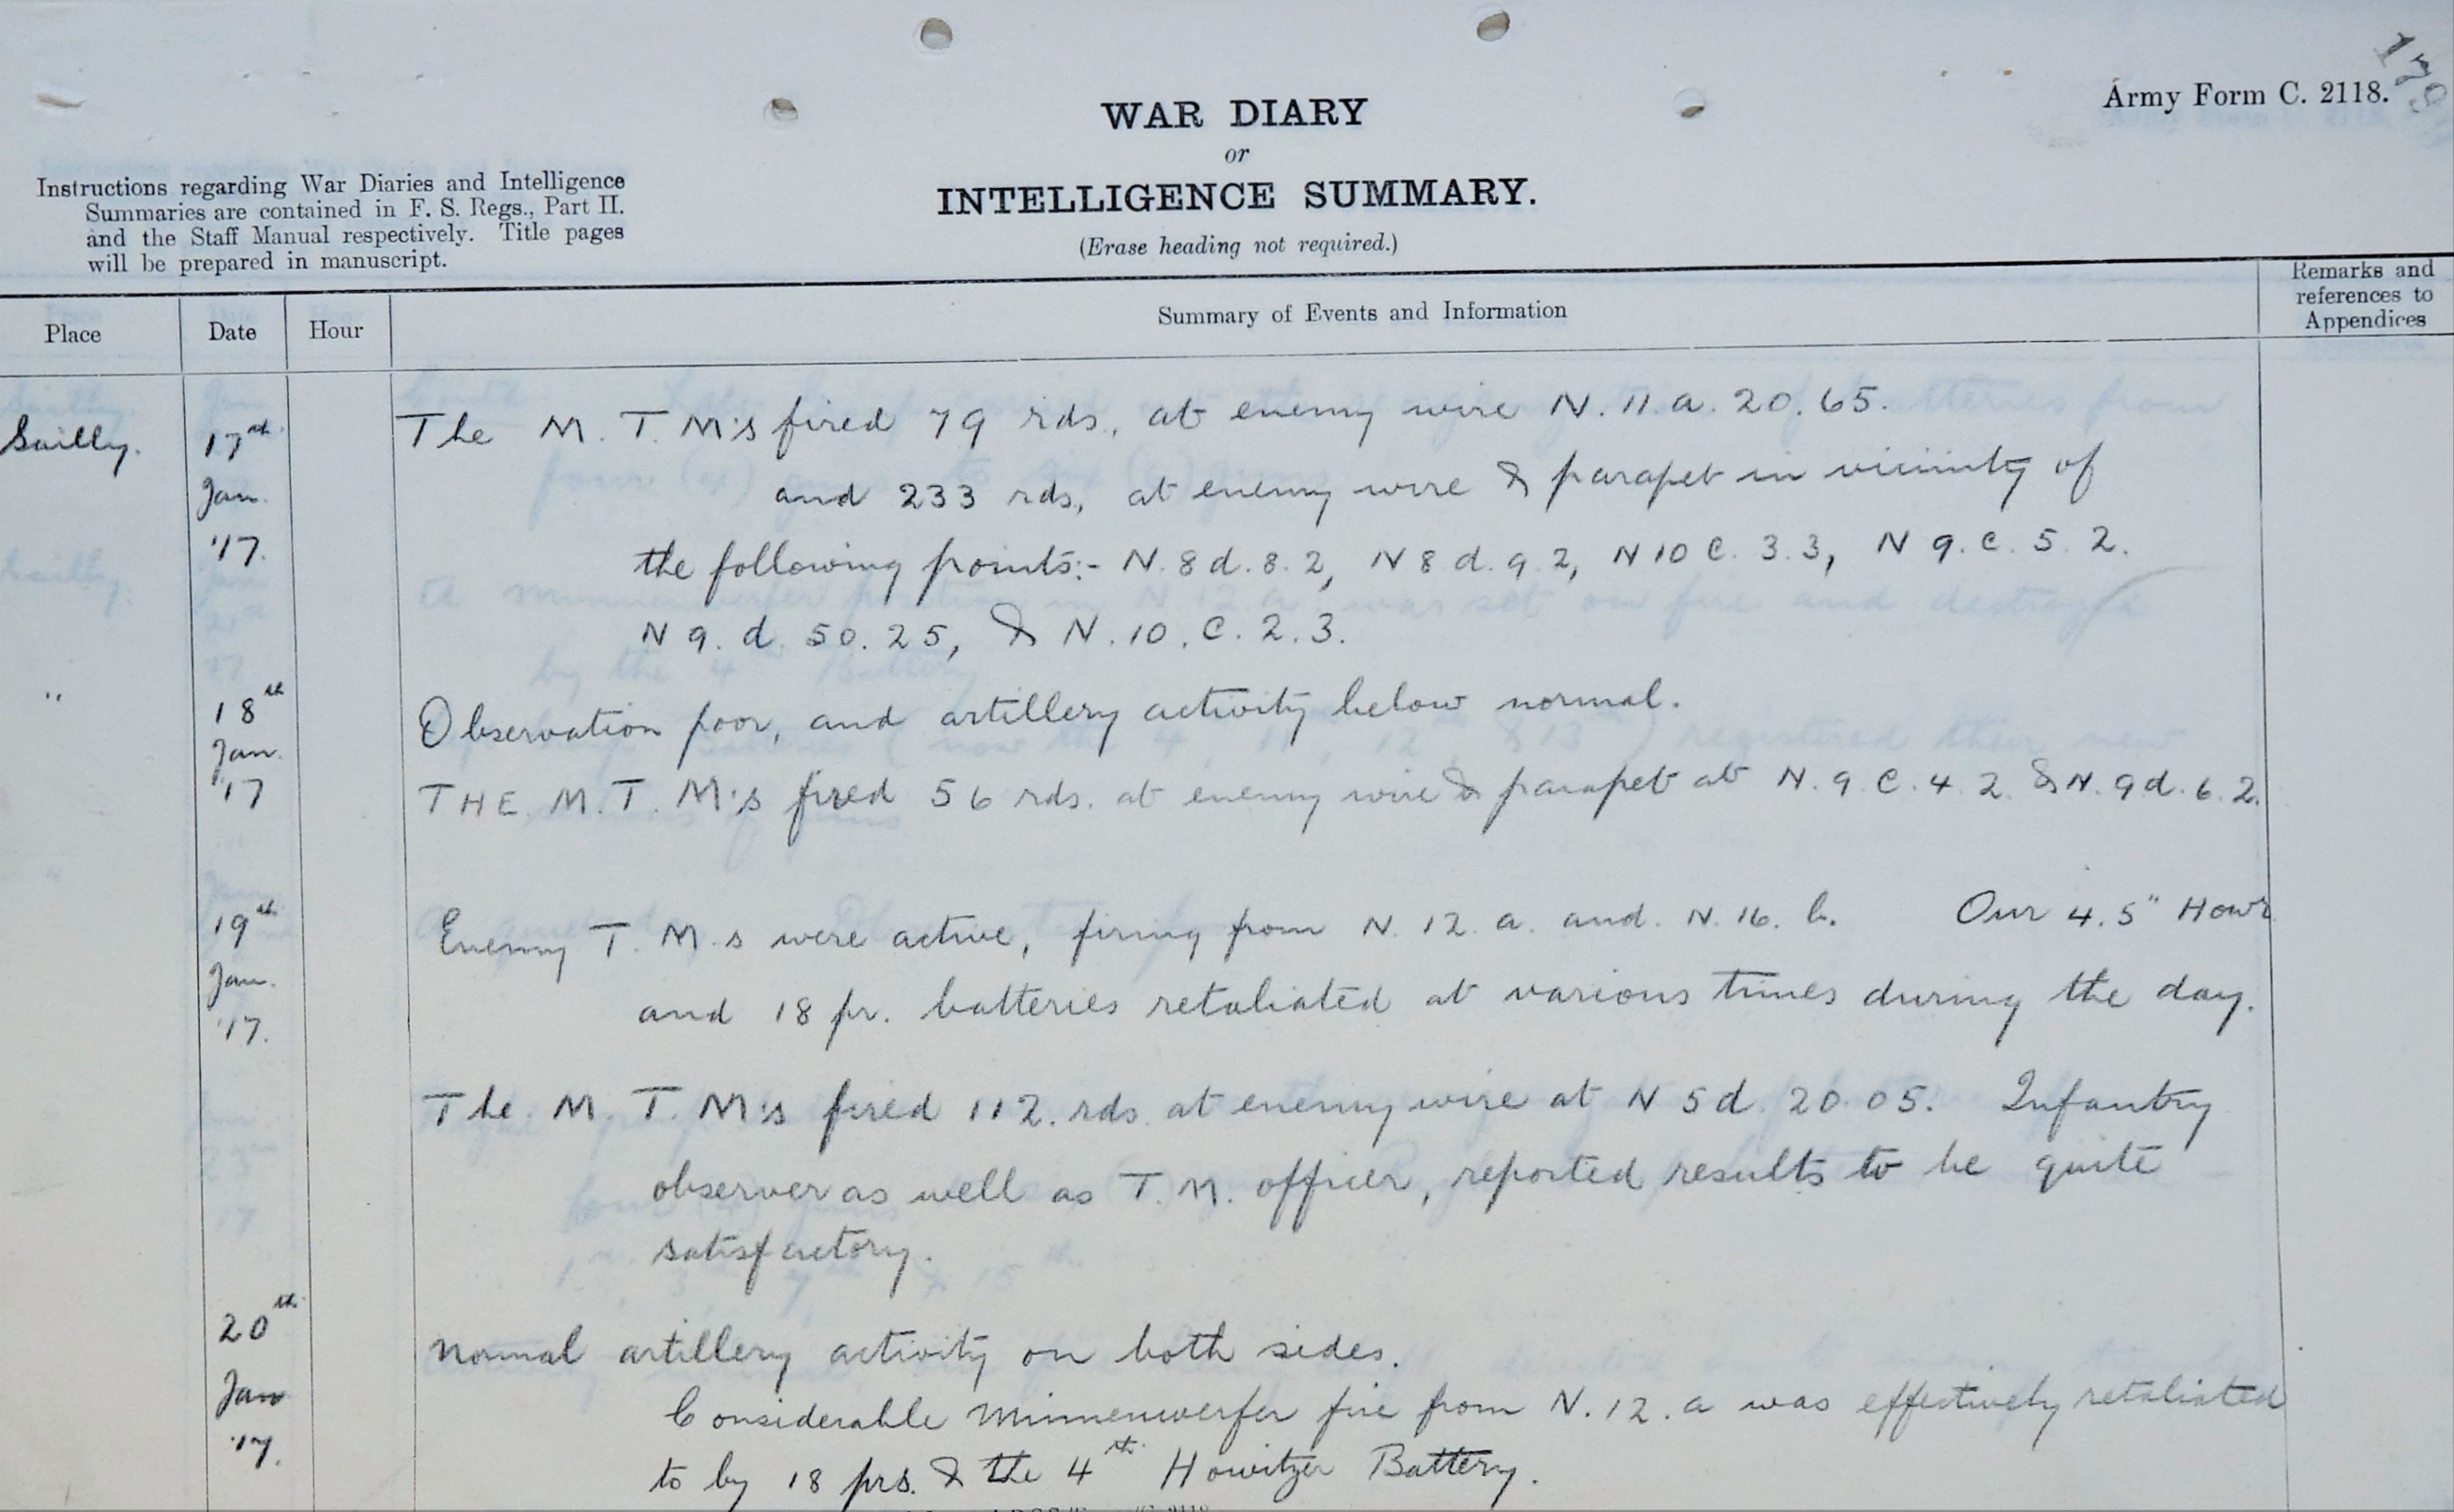 Army Form C. 2118.
WAR DIARY
or
INTELLIGENCE SUMMARY.
(Erase heading not required.)
Instructions regarding War Diaries and Intelligence
Summaries are contained in F. S. Regs., Part II.
and the Staff Manual respectively. Title pages
will be prepared in manuscript.
Place Date Hour Summary of Events and Information Remarks and
references to
Appendices
Sailly. 17th The M. T. M's fired 79 rds, at enemy wire N. 11. a. 20. 65.
Jan. and 233 rds, at enemy wire & parapet in vicinity of
'17. the following points:- N. 8 d. 8. 2, N 8 d. 9 2, N 10 C. 3. 3, N 9. c. 5 2.
N 9. d. 50. 25, & N. 10. C. 2. 3.
" 18th Observation poor, and artillery activity below normal.
Jan.
'17 THE. M. T. M's fired 56 rds. at enemy wire & parapet at N. 9 C. 4. 2. & N. 9 d. 6. 2.
19th Enemy T. M. s were active, firing from N. 12. a. and. N. 16. b. Our 4. 5" Howr
Jan. and 18 pr. batteries retaliated at various times during the day.
'17.
The. M. T. M's fired 112. rds. at enemy wire at N 5 d 20. 05. Infantry
observer as well as T. M. officer, reported results to be quite
satisfactory.
20th Normal artillery activity on both sides.
Jan Considerable Minnenwerfer fire from N. 12. a was effectively retaliated
'17. to by 18 prs. & the 4th Howitzer Battery.